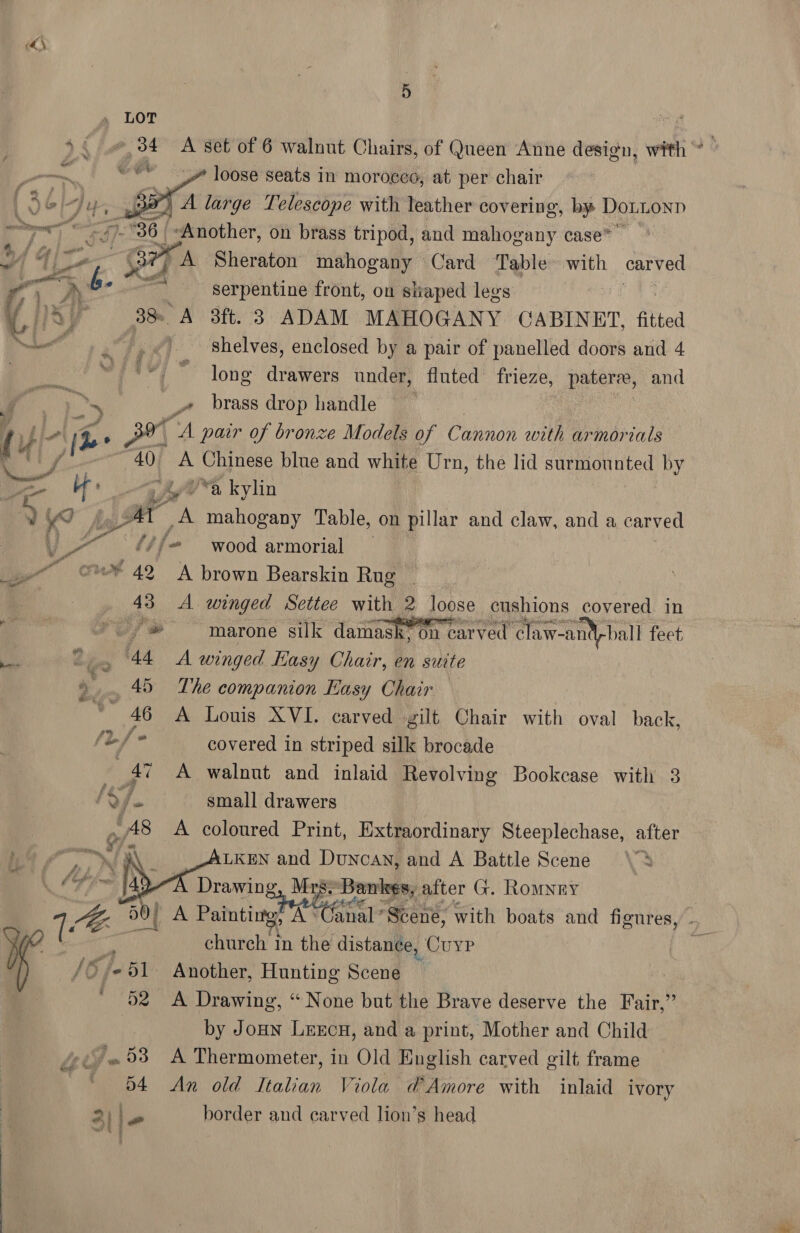 5
LOT
34 A set of 6 walnut Chairs, of Queen Anne design, with
loose seats in morocco, at per chair
35 A large Telescope with leather covering, by DOLLOND
36 Another, on brass tripod, and mahogany case
37 A Sheraton mahogany Card Table with carved
serpentine front, on shaped legs
38 A 3ft. 3 ADAM MAHOGANY CABINET, fitted
shelves, enclosed by a pair of panelled doors and 4
long drawers under, fluted frieze, pateræ, and
brass drop handle
39 A pair of bronze Models of Cannon with armorials
40 A Chinese blue and white Urn, the lid surmounted by
a kylin
41 A mahogany Table, on pillar and claw, and a carved
wood armorial
42 A brown Bearskin Rug
43 A winged Settee with 2 loose cushions covered in
marone silk damask, on carved claw-and-ball feet
44 A winged Easy Chair, en suite
45 The companion Easy Chair
46 A Louis XVI. carved gilt Chair with oval back,
covered in striped silk brocade
47 A walnut and inlaid Revolving Bookcase with 3
small drawers
48 A coloured Print, Extraordinary Steeplechase, after
ALKEN and DUNCAN, and A Battle Scene
49 A Drawing, Mrs. Bankes, after G. ROMNEY
50 A Painting, A Canal Scene, with boats and figures,
church in the distance, CUYP
51 Another, Hunting Scene
52 A Drawing, “None but the Brave deserve the Fair,”
by JOHN LEECH, and a print, Mother and Child
53 A Thermometer, in Old English carved gilt frame
54 An old Italian Viola d'Amore with inlaid ivory
border and carved lion's head